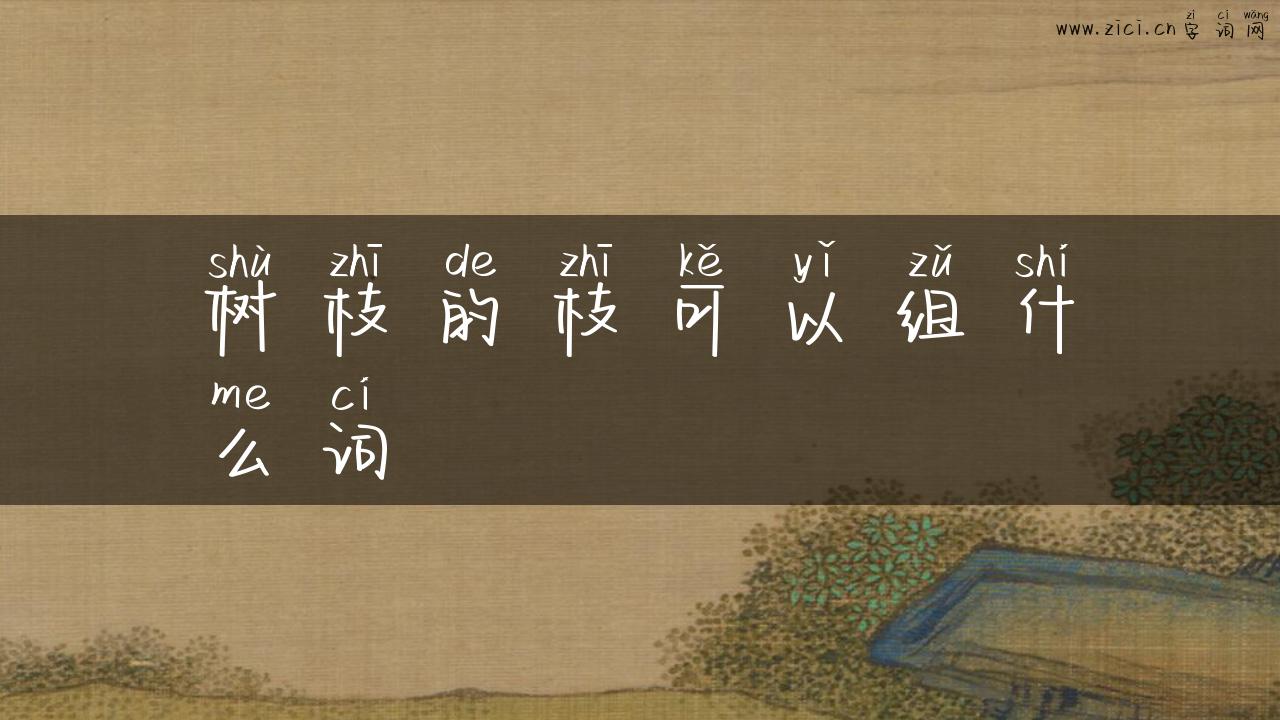 zì cí wǎng
www.zici.cn 字词网
shù zhī de zhī kě yǐ zǔ shí
树枝的枝可以组什
me cí
么词